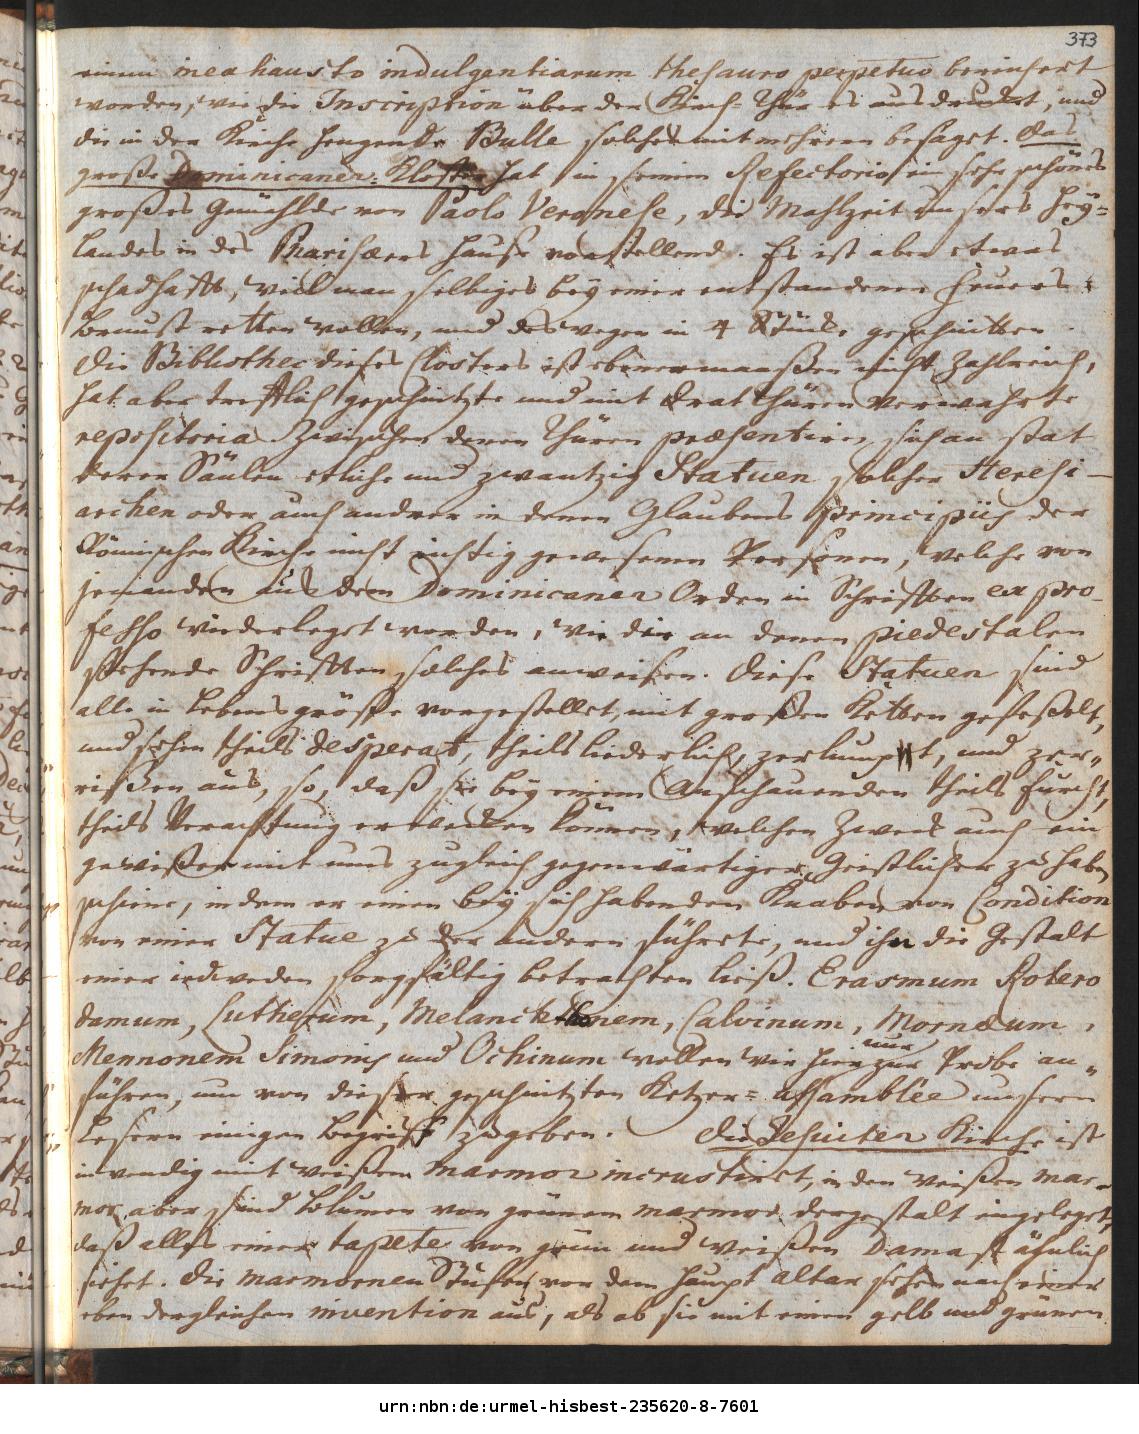 373
einem inexhausto indulgentiarum thesauro perpetuo bereichert
worden, wie die Inscription über der Kirch-Thür es ausdrucket, und
die in der Kirche hengende Bulle solches mit mehrern besaget. Das
große Dominicaner-Kloster hat in seinem Refectorio ein sehr schönes
großes Gemählde von Paolo Veronese, die Mahlzeit unsers Hey-
landes in des Pharisæers Hause vorstellend. Es ist aber etwas
schadhafft, weil man selbiges bey einer entstandenen Feuers-
Brunst retten wollen, und deswegen in 4 Stücke geschnitten.
Die Bibliothec dieses Closters ist ebenermaaßen nicht zahlreich,
hat aber trefflich geschnitzte und mit Drat Thüren verwahrte
repositoria. Zwischen denen Thüren præsentiren sich an stat
derer Säulen etliche und zwantzig Statuen solcher Heresi-
archen oder auch andrer in denen Glaubens principiis der
Römischen Kirche nicht richtig gewesenen Personen, welche von
jemanden aus dem Dominicaner Orden in Schrifften ex pro-
fesso wiederleget worden, wie die an denen piedestalen
stehende Schrifften solches anweisen. Diese Statuen sind
alle in Lebensgröße vorgestellet, mit großen Ketten gefeßelt,
und sehen theils desperat, theils liederlich, zerlumpt, und zer-
rißen aus, so, daß sie bey einem Anschauenden theils Furcht,
theils Verachtung erwecken können, welchen Zweck auch ein
gewißer mit uns zugleich gegenwärtiger Geistlicher zu haben
schiene, indem er einen bey sich habenden Knaben von Condition
von einer Statue zu der andern führete, und ihn die Gestalt
einer iedweden sorgfältig betrachten ließ. Erasmum Rotero
damum, Lutherum, Melanchthonem, Calvinum, Mornæum,
Mennonem Simonis und Ochinum wollen wir hier nur zur Probe an-
führen, um von dieser geschnitzten Ketzer-assamblée unsern
Lesern einigen Begriff zu geben. Die Jesuiter Kirche ist
inwendig mit weißem marmor incrustiret, in den weißen mar-
mor aber sind Blumen von grünem marmor dergestalt eingeleget,
daß alles einer tapete von grün und weißen Damast ähnlich
siehet. Die marmornen Stufen vor dem Haupt altar sehen nach einer
eben dergleichen invention aus, als ob sie mit einem gelb und grünen
urn:nbn:de:urmel-hisbest-235620-8-7601